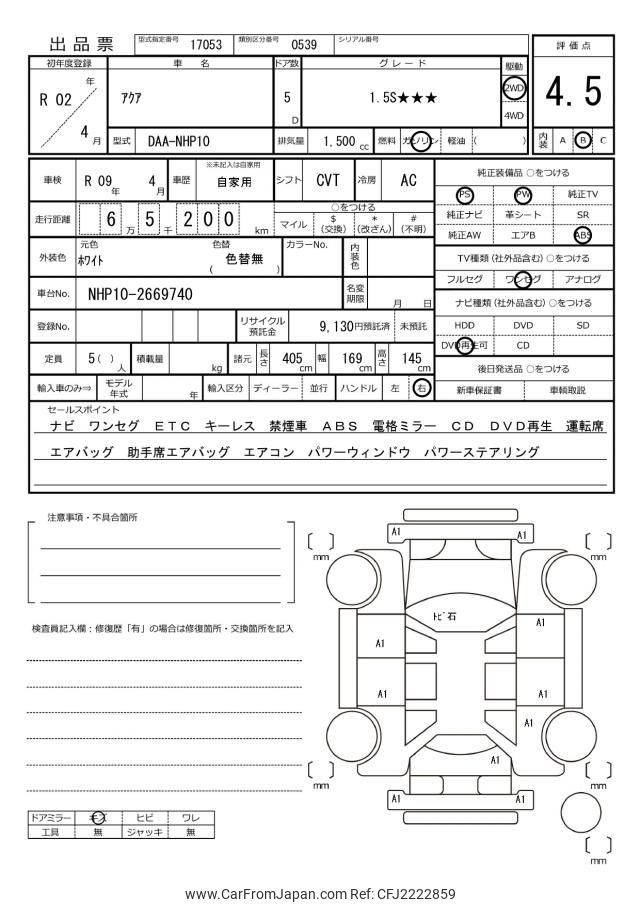 出品票 型式指定番号 17053 類別区分番号 0539 シリアル番号
評価点
4.5
内装 A B C
初年度登録 車名 ドア数 グレード 駆動
R 02 年 4 月
アクア 5 D 1.5S★★★ 2WD 4WD
型式 DAA-NHP10 排気量 1,500 cc 燃料 ガソリン 軽油 ( )
車検 R 09 年 4 月 車歴 ※未記入は自家用 自家用 シフト CVT 冷房 AC
走行距離 6 万 5 千 2 0 0 km
○をつける
マイル $ (交換) * (改ざん) # (不明)
外装色 元色 ホワイト 色替 ( 色替無 ) カラーNo. 内装色
車台No. NHP10-2669740 名変期限 月 日
登録No. リサイクル預託金 9,130円預託済 未預託
定員 5( ) 人 積載量 kg 諸元 長さ 405 cm 幅 169 cm 高さ 145 cm
輸入車のみ⇒ モデル年式 年 輸入区分 ディーラー 並行 ハンドル 左 右
純正装備品 ○をつける
PS PW 純正TV
純正ナビ 革シート SR
純正AW エアB ABS
TV種類 (社外品含む) ○をつける
フルセグ ワンセグ アナログ
ナビ種類 (社外品含む) ○をつける
HDD DVD SD
DVD再生可 CD
後日発送品 ○をつける
新車保証書 車輌取説
セールスポイント
ナビ ワンセグ ETC キーレス 禁煙車 ABS 電格ミラー CD DVD再生 運転席
エアバッグ 助手席エアバッグ エアコン パワーウィンドウ パワーステアリング
注意事項・不具合箇所
検査員記入欄：修復歴「有」の場合は修復箇所・交換箇所を記入
ドアミラー キズ ヒビ ワレ
工具 無 ジャッキ 無
A1 A1
[ ] mm [ ] mm
トビ石
A1 A1
A1 A1
A1
A1
[ ] mm [ ] mm
A1 A1
[ ] mm
www.CarFromJapan.com Ref: CFJ2222859